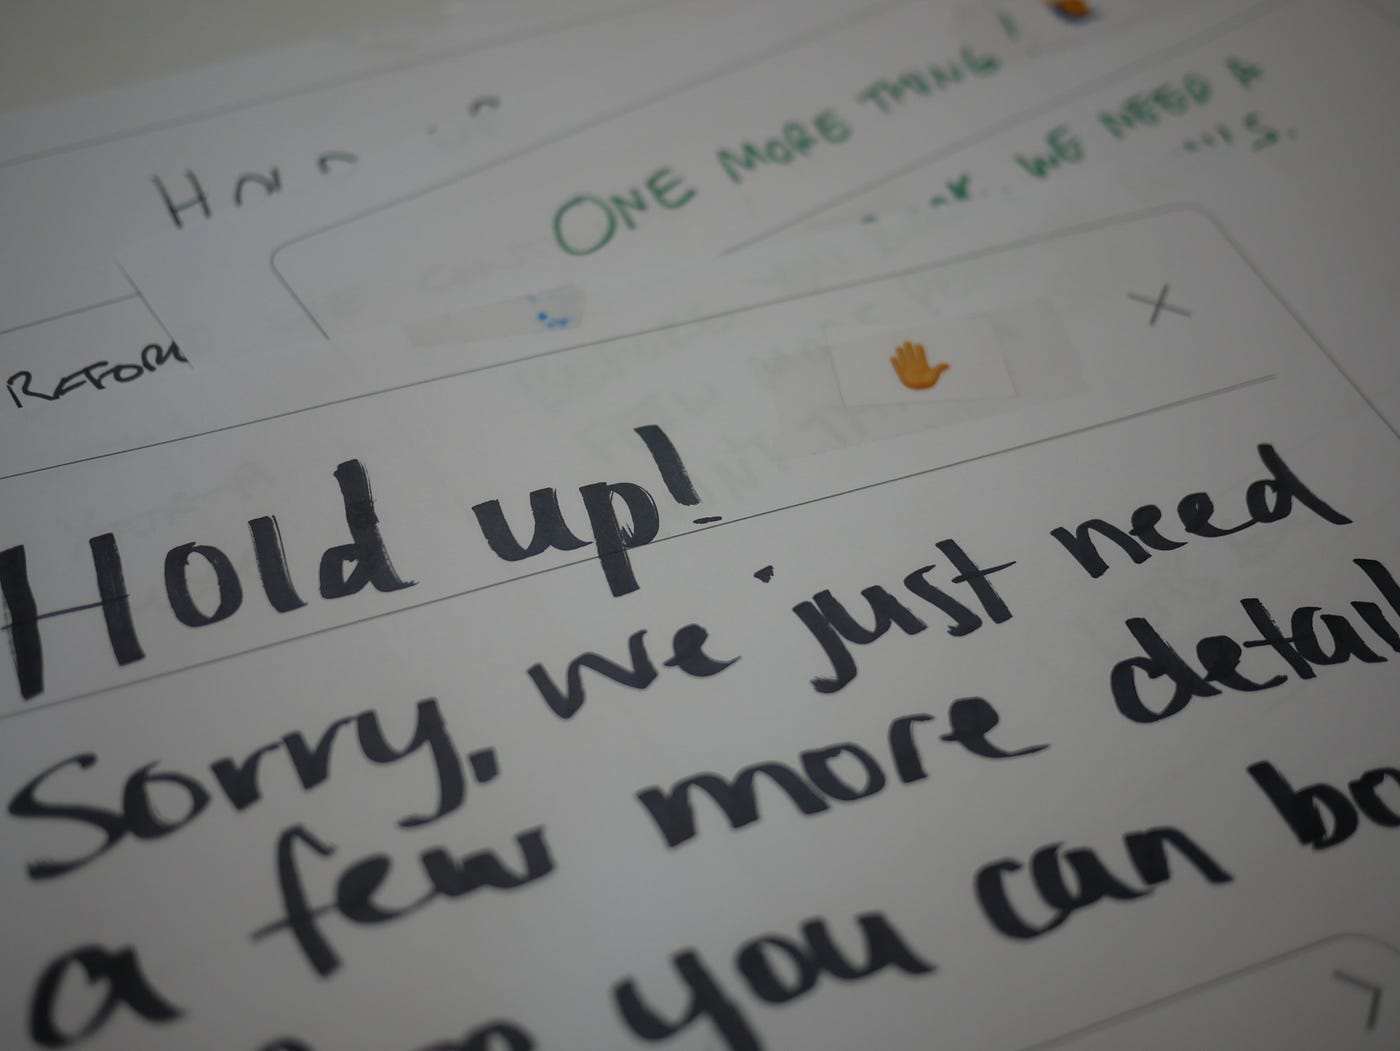 ONE MORE THING!
WE NEED A
Hold up!
Sorry, we just need
a few more detail
you can bo